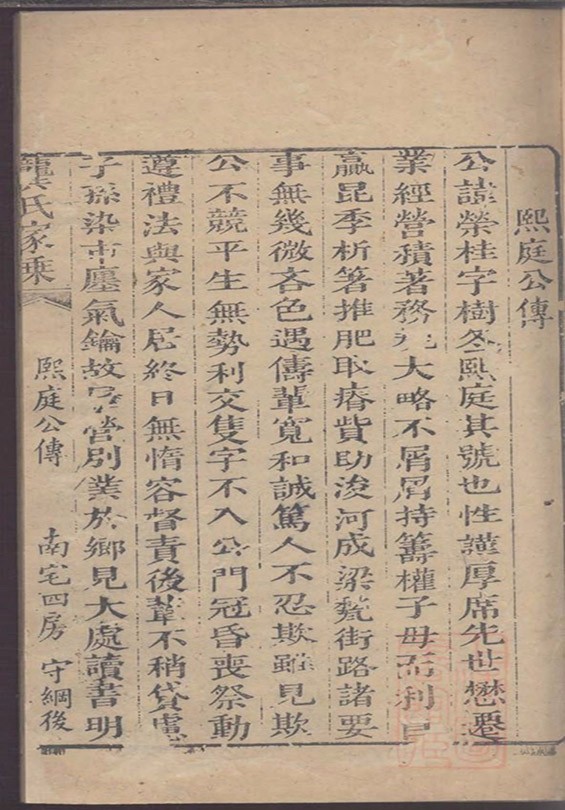 熙庭公傳
公諱榮桂字樹冬熙庭其號也性謹厚席先世懋遷
業經營積著務先大略不屑屑持籌權子母而利日
贏昆季析箸推肥取瘠貲助浚河成梁甃街路諸要
事無幾微吝色遇儔輩寬和誠篤人不忍欺雖見欺
公不競平生無勢利交隻字不入公門冠昏喪祭動
遵禮法與家人居終日無惰容督責後輩不稍貸慮
子孫染市廛氣鑰故 營別業於鄉見大處讀書明
龔氏家乘
熙庭公傳
南宅四房
守綱後